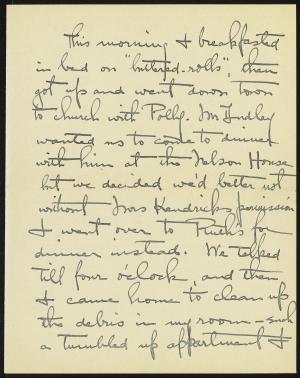 This morning I breakfasted
in bed on "buttered-rolls", then
got up and went down town
to church with Polly. Mr Lindley
wanted us to come to dinner
with him at the Nelson House
but we decided we'd better not
without Mrs Kendrick's permission
I went over to Ruth's for
dinner instead. We talked
till four o'clock, and then
I came home to clean up
the debris in my room - such
a tumbled up appartment I